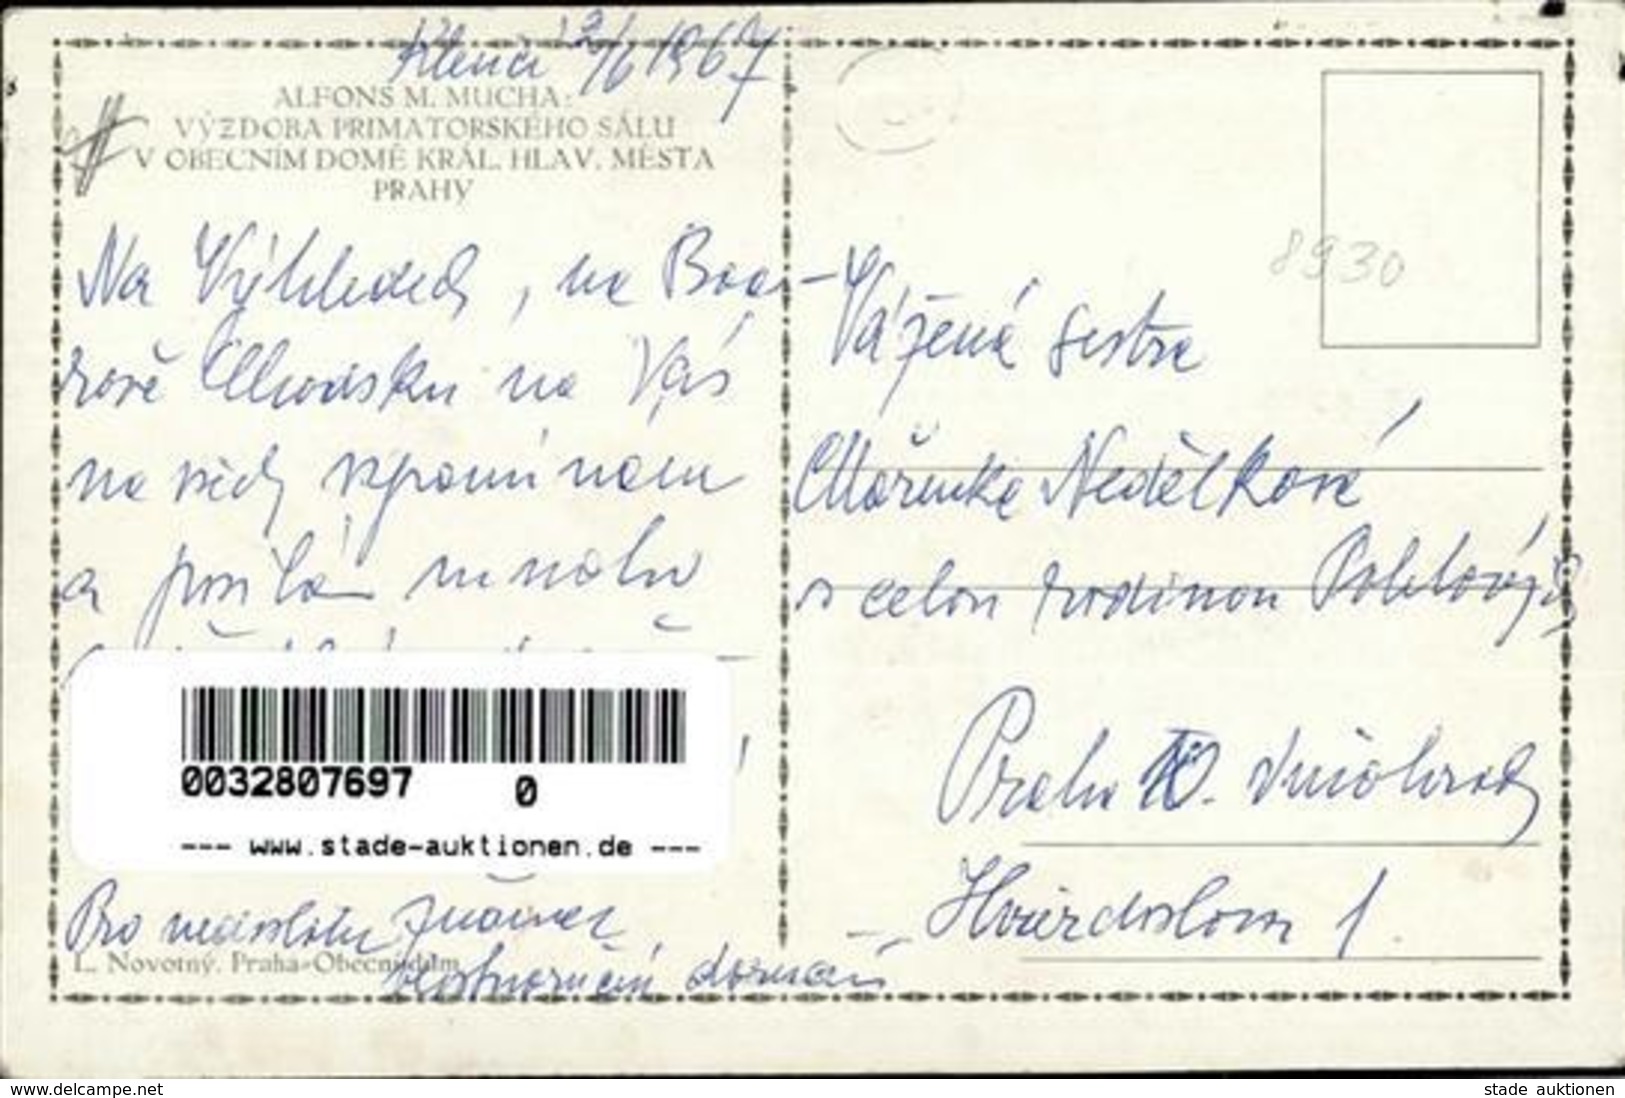 Klenčí 12/6 1967
ALFONS M. MUCHA:
VÝZDOBA PRIMATORSKÉHO SÁLU
V OBECNÍM DOMĚ KRÁL. HLAV. MĚSTA
PRAHY
Na Výhledech, na Baa-
rově Chodsku na Vás
vzpomínám
a posílám mnoho
0032807697 0
--- www.stade-auktionen.de ---
Pro
L. Novotný, Praha-Obecní dům
8930
Vážená sestra
Mařenka Nedělková
s celou rodinou
Praha 10. Vinohrady
Hviezdoslavova 1.
www.delcampe.net
stade auktionen